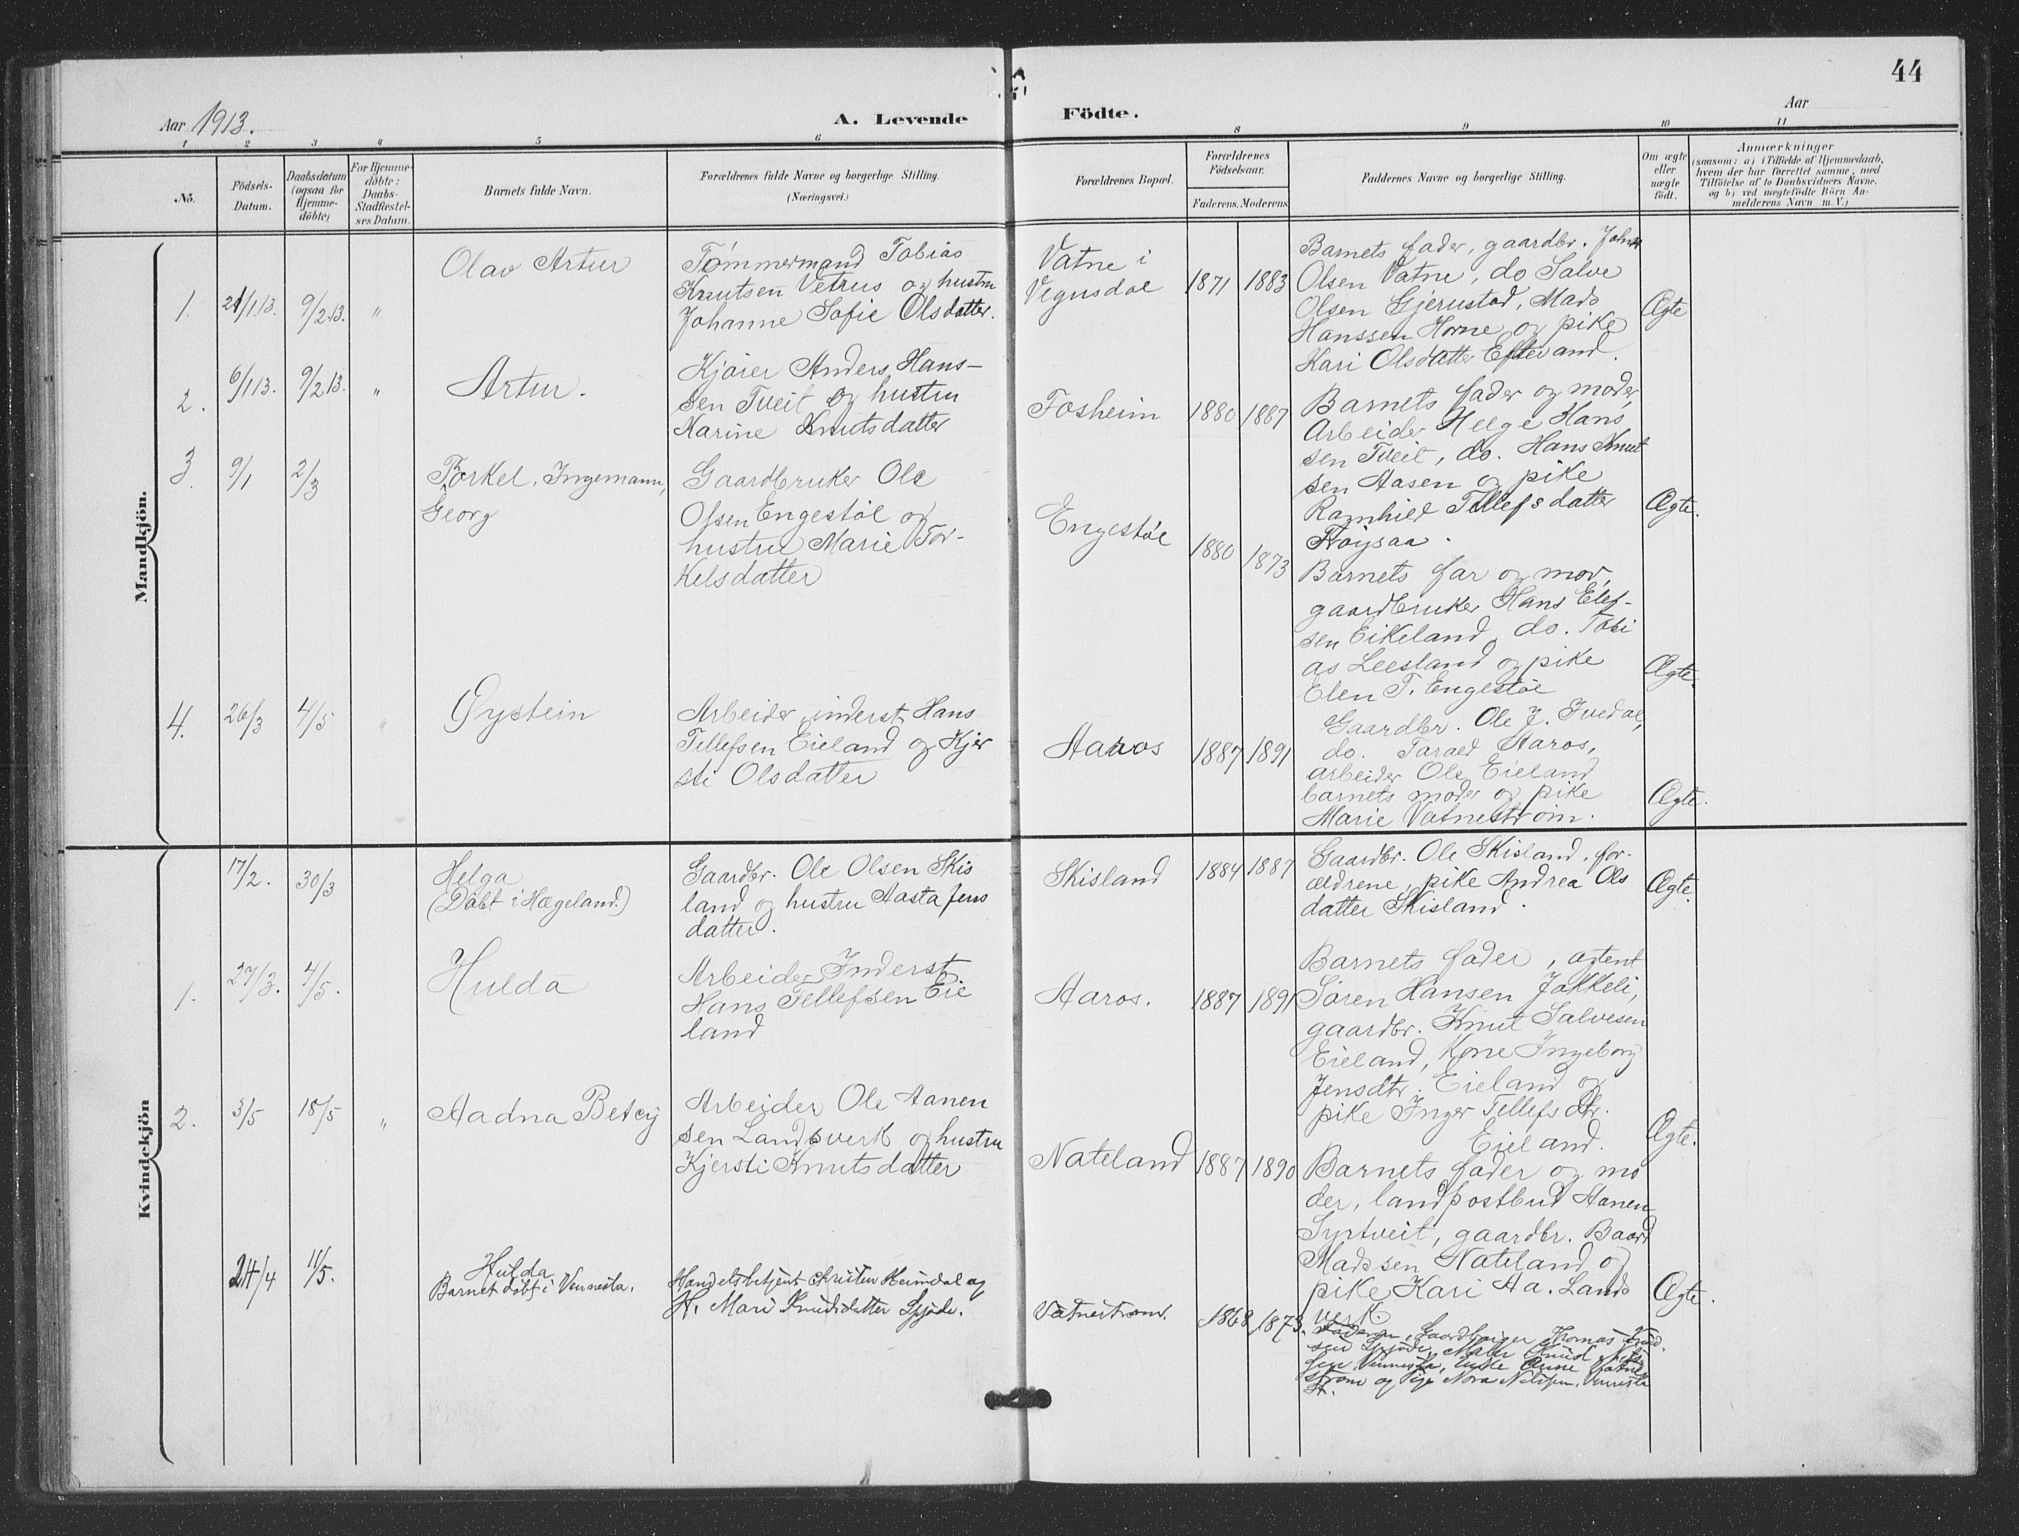 44
Aar 1913.
A. Levende Födte.
Aar
1 2 3 4 5 6 8 9 10 11
No.
Födsels-Datum.
Daabsdatum (ogsaa for Hjemme-döbte)
For Hjemme-döbte: Daabs-Stadfæstel-ses Datum.
Barnets fulde Navn.
Forældrenes fulde Navne og borgerlige Stilling. (Næringsvei.)
Forældrenes Bopæl.
Forældrenes Födselsaar.
Faderens. Moderens.
Faddernes Navne og borgerlige Stilling.
Om ægte eller uægte født.
Anmærkninger
(saasom: a) i Tilfælde af Hjemmedaab, hvem der har forrettet samme, med Tilföielse af to Daabsvidners Navne, og b) ved uegtefödte Börn An-melderens Navn m. V.)
Mandkjön.
1.
21/1 13.
9/2 13.
"
Olav Artur
Tømmermand Tobias
Knutsen Vetrus og hustru
Johanne Sofie Olsdatter.
Vatne i
Vegusdal
1871
1883
Barnets fader, gaardbr. Johan
Olsen Vatne, do Salve
Olsen Gjerustad, Mads
Hanssen Horne og pike
Kari Olsdatter Eftevand.
Ægte
2.
6/1 13.
9/2 13.
"
Artur.
Kjører Anders Hans-
sen Tveit og hustru
Karine Knutsdatter
Fosheim
1880
1887
Barnets fader og moder,
Arbeider Helge Hans
sen Tveit, do. Hans Knut
sen Aasen og pike
Ragnhild Tellefsdatter
Frøysaa.
Ægte.
3.
9/1
2/3
Torkel, Ingemann,
Georg
Gaardbruker Ole
Olsen Engestøl og
hustru Marie Tor-
kelsdatter
Engestøl
1880
1873
Barnets far og mor,
gaardbruker Hans Elef-
sen Eikeland, do. Tobi
as Leesland og pike
Elen T. Engestøl
Ægte.
4.
26/3
4/5
"
Øystein
Arbeider, inderst Hans
Tellefsen Eieland og Kjer
sti Olsdatter
Aaros
1887
1891
Gaardbr. Ole J. Ivedal,
do. Tarald Aaros,
arbeider Ole Eieland
barnets moder og pike
Marie Vatnestrøm.
Ægte.
Kvindekjön
17/2.
30/3
Helga
(Døbt i Hægeland.)
Gaardbr. Ole Olsen Skis
land og hustru Aasta Jens
datter.
Skisland
1884
1887
Gaardbr. Ole Skisland, for-
ældrene, pike Andrea Ols
datter Skisland.
Ægte.
1.
27/3.
4/5.
Hulda
Arbeider Inderst
Hans Tellefsen Eie
land
Aaros.
1887
1891
Barnets fader, agent
Søren Hansen Jokkeli,
gaardbr. Knut Salvesen
Eieland, Kone Ingeborg
Jensdtr. Eieland og
pike Inger Tellefsdtr.
Eieland.
Ægte.
2.
3/5
18/5
"
Aadna Betsy
Arbeider Ole Aanen
sen Landsverk og hustru
Kjersti Knutsdatter
Nateland
1887
1890
Barnets fader og mo
der, landpostbud Aanen
Syrtveit, gaardbr. Baard
Madssen Nateland og
pike Kari Aa. Lands
verk.
Ægte.
24/4
11/5.
Hulda
Barnet døbt i Vennesla.
Handelsbetjent Christen Heimdal og
H. Mari Knudsdatter Spjøde.
Vatnestrøm.
1868
1873.
Faderen, Gaardbruger Thomas Knud
sen Spjøde, Maler Knud Niel
sen Vennesla, Enke Anne Vatne
strøm og Pige Nora Nielsen, Vennesla